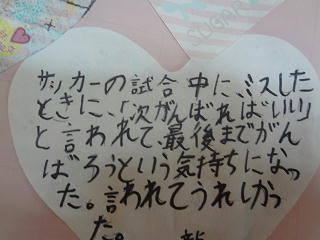 SUGAR
サッカーの試合中に、ミスした
ときに、「次がんばればいい」
と言われて、最後までがん
ばろうという気持ちになっ
た。言われてうれしかっ
た。